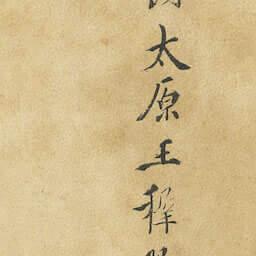 太原王穉